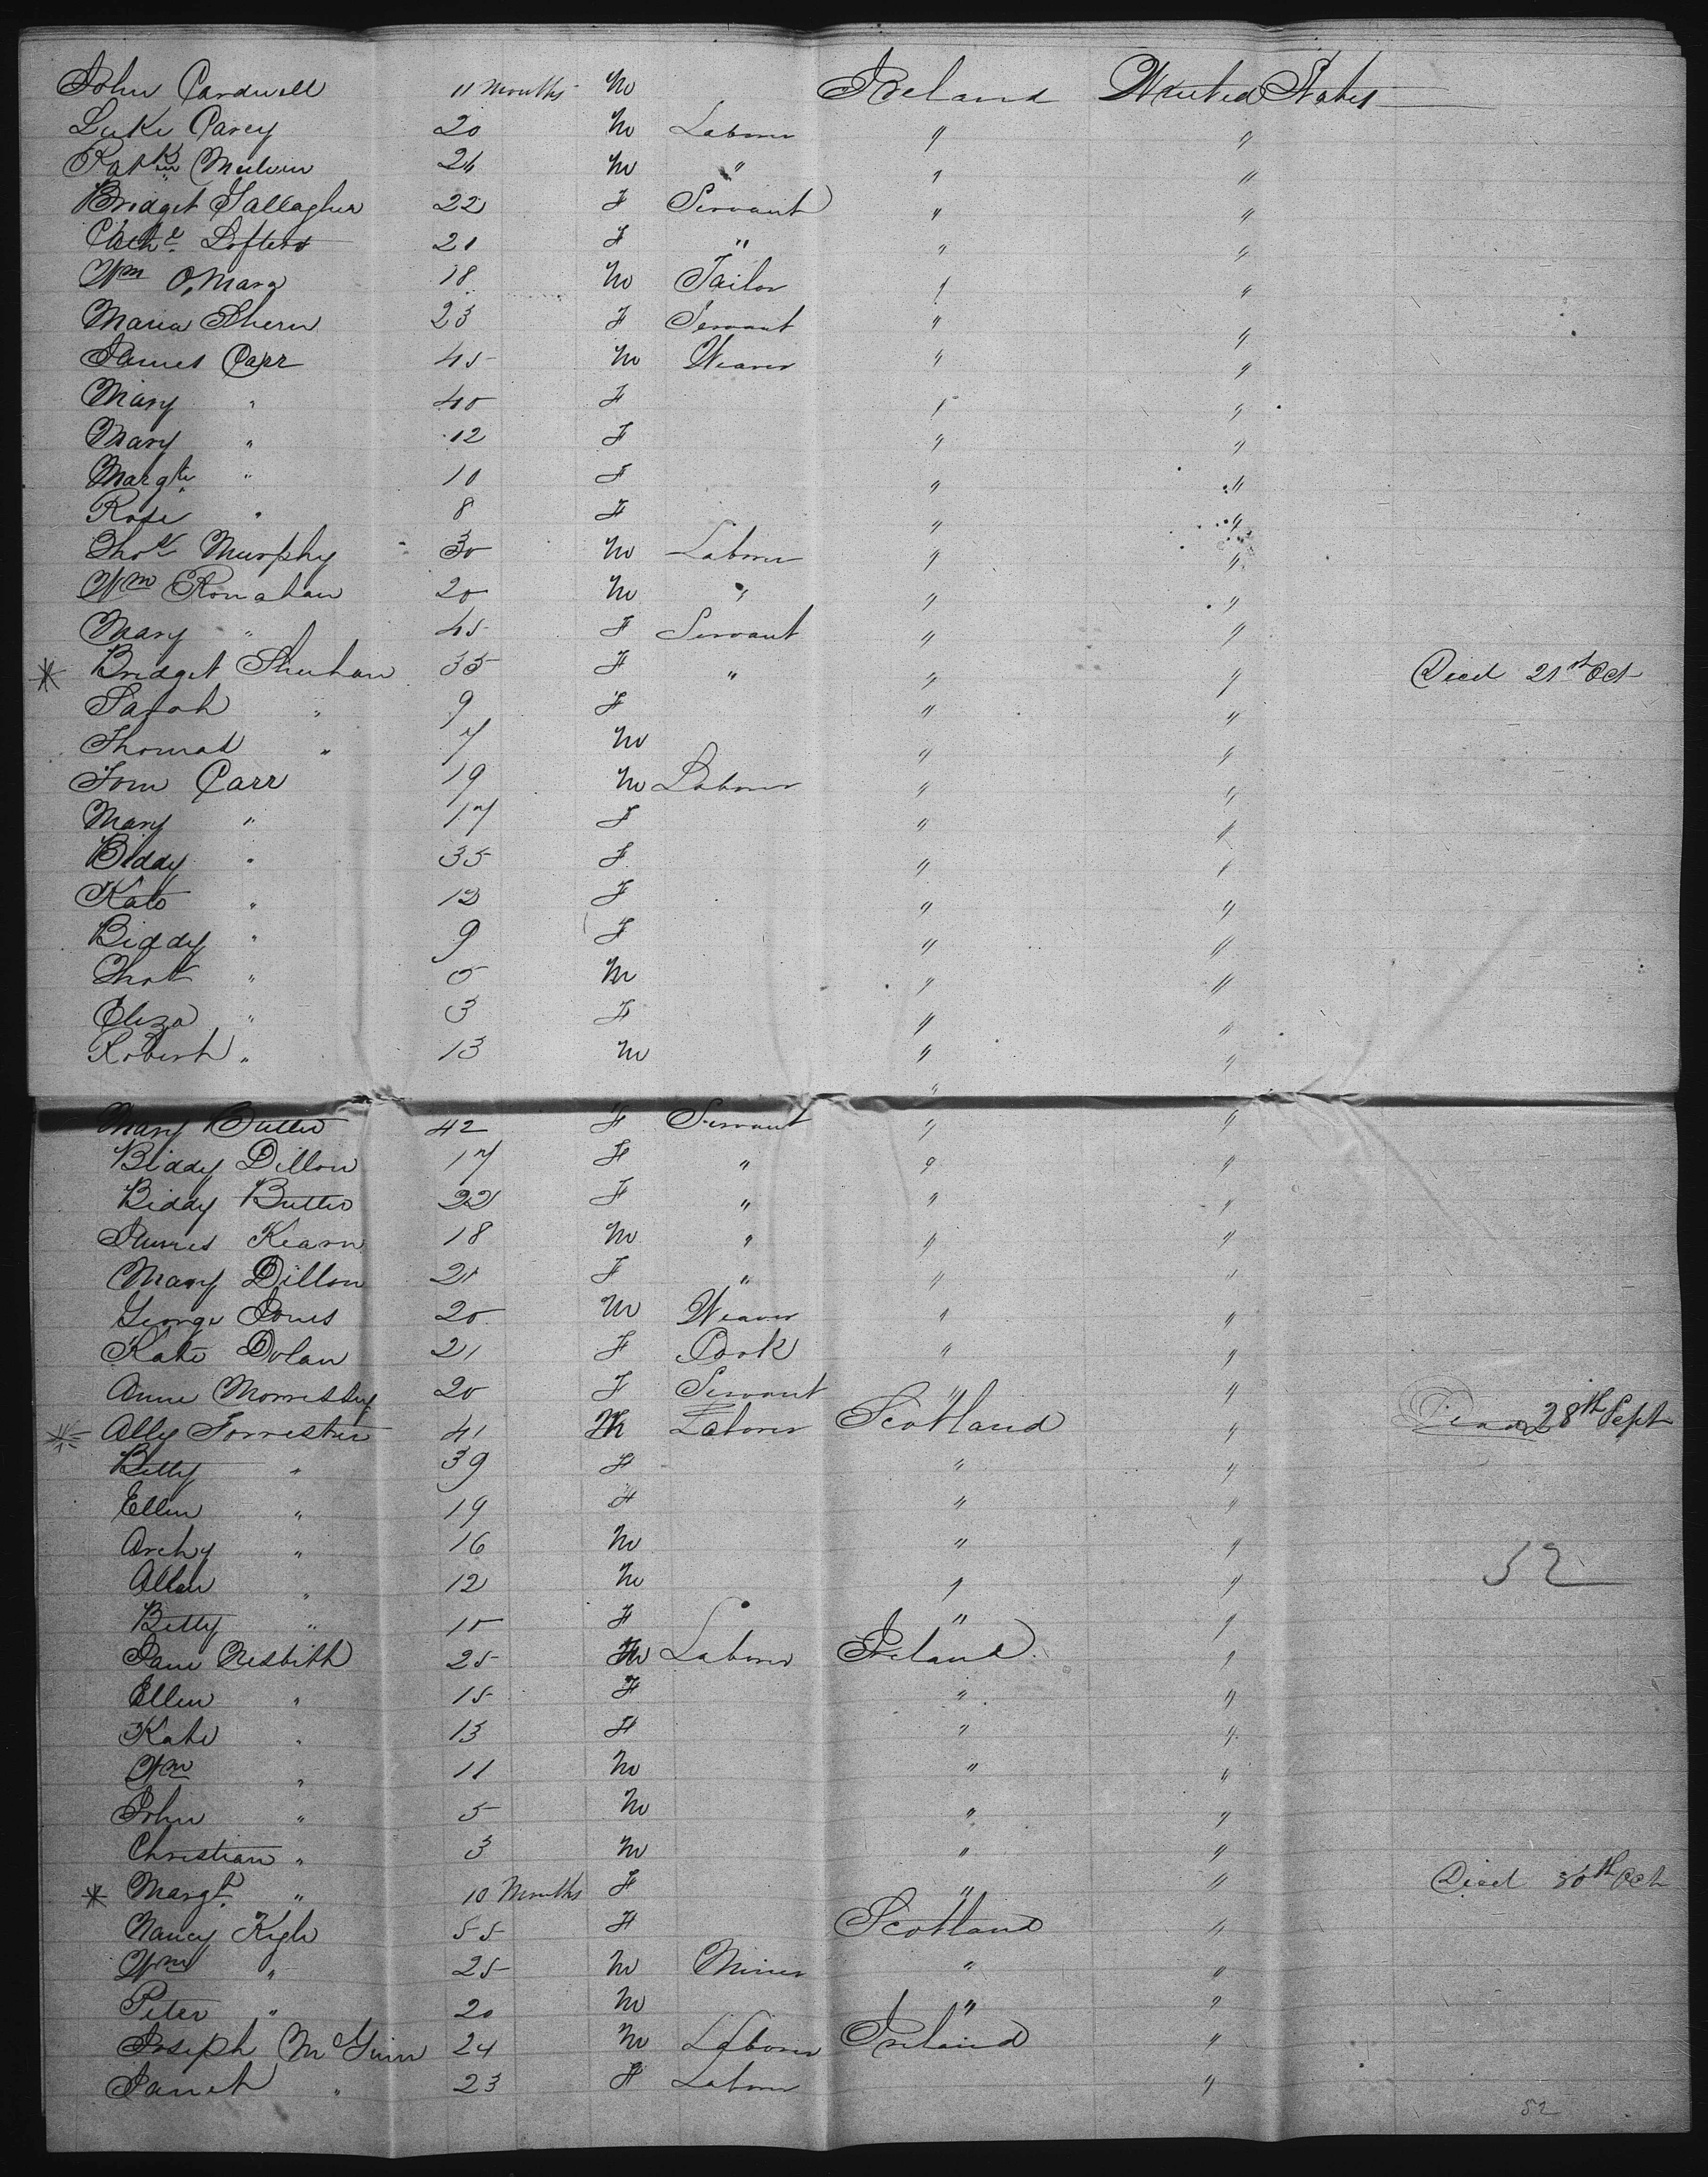 John Cardwell 11 Months M Ireland United States
Luke Carey 20 M Laborer " "
Patk 26 M " " "
Bridget Gallagher 22 F Servant " "
Cathe Loftus 21 F " " "
Wm O'Mara 18 M Tailor " "
Maria Ahern 23 F Servant " "
James Carr 45 M Weaver " "
Mary " 40 F " "
Mary " 12 F " "
Margte " 10 F " "
Rose " 8 F " "
Thos Murphy 30 M Laborer " "
Wm Ronahan 20 M " " "
Mary " 45 F Servant " "
* Bridget Sheehan 35 F " " " Died 21st Oct
Sarah " 9 F " "
Thomas " 7 M " "
Tom Carr 19 M Laborer " "
Mary " 17 F " "
Biddy " 35 F " "
Kate " 12 F " "
Biddy " 9 F " "
Thos " 5 M " "
Eliza " 3 F " "
Robert " 13 M " "
"
Mary Butler 42 F Servant " "
Biddy Dillon 17 F " " "
Biddy Butler 22 F " " "
James Kearn 18 M " " "
Mary Dillon 21 F " " "
George Jones 20 M Weaver " "
Kate Dolan 21 F Cook " "
Anne Morrissey 20 F Servant " "
* Ally Forrester 41 M Laborer Scotland " Died 28th Sept
Betty " 39 F " "
Ellen " 19 F " "
Archy " 16 M " "
Allan " 12 M " " 52
Betty " 10 F " "
Jane Nesbith 25 Laborer Ireland "
Ellen " 15 F " "
Kate " 13 F " "
Wm " 11 M " "
John " 5 M " "
Christian " 3 M " "
* Margt " 10 Months F " " Died 30th Oct
Nancy 55 F Scotland "
Wm " 25 M Miner " "
Peter " 20 M " "
Joseph McGinn 24 M Laborer Ireland "
Janet " 23 F Laborer "
52